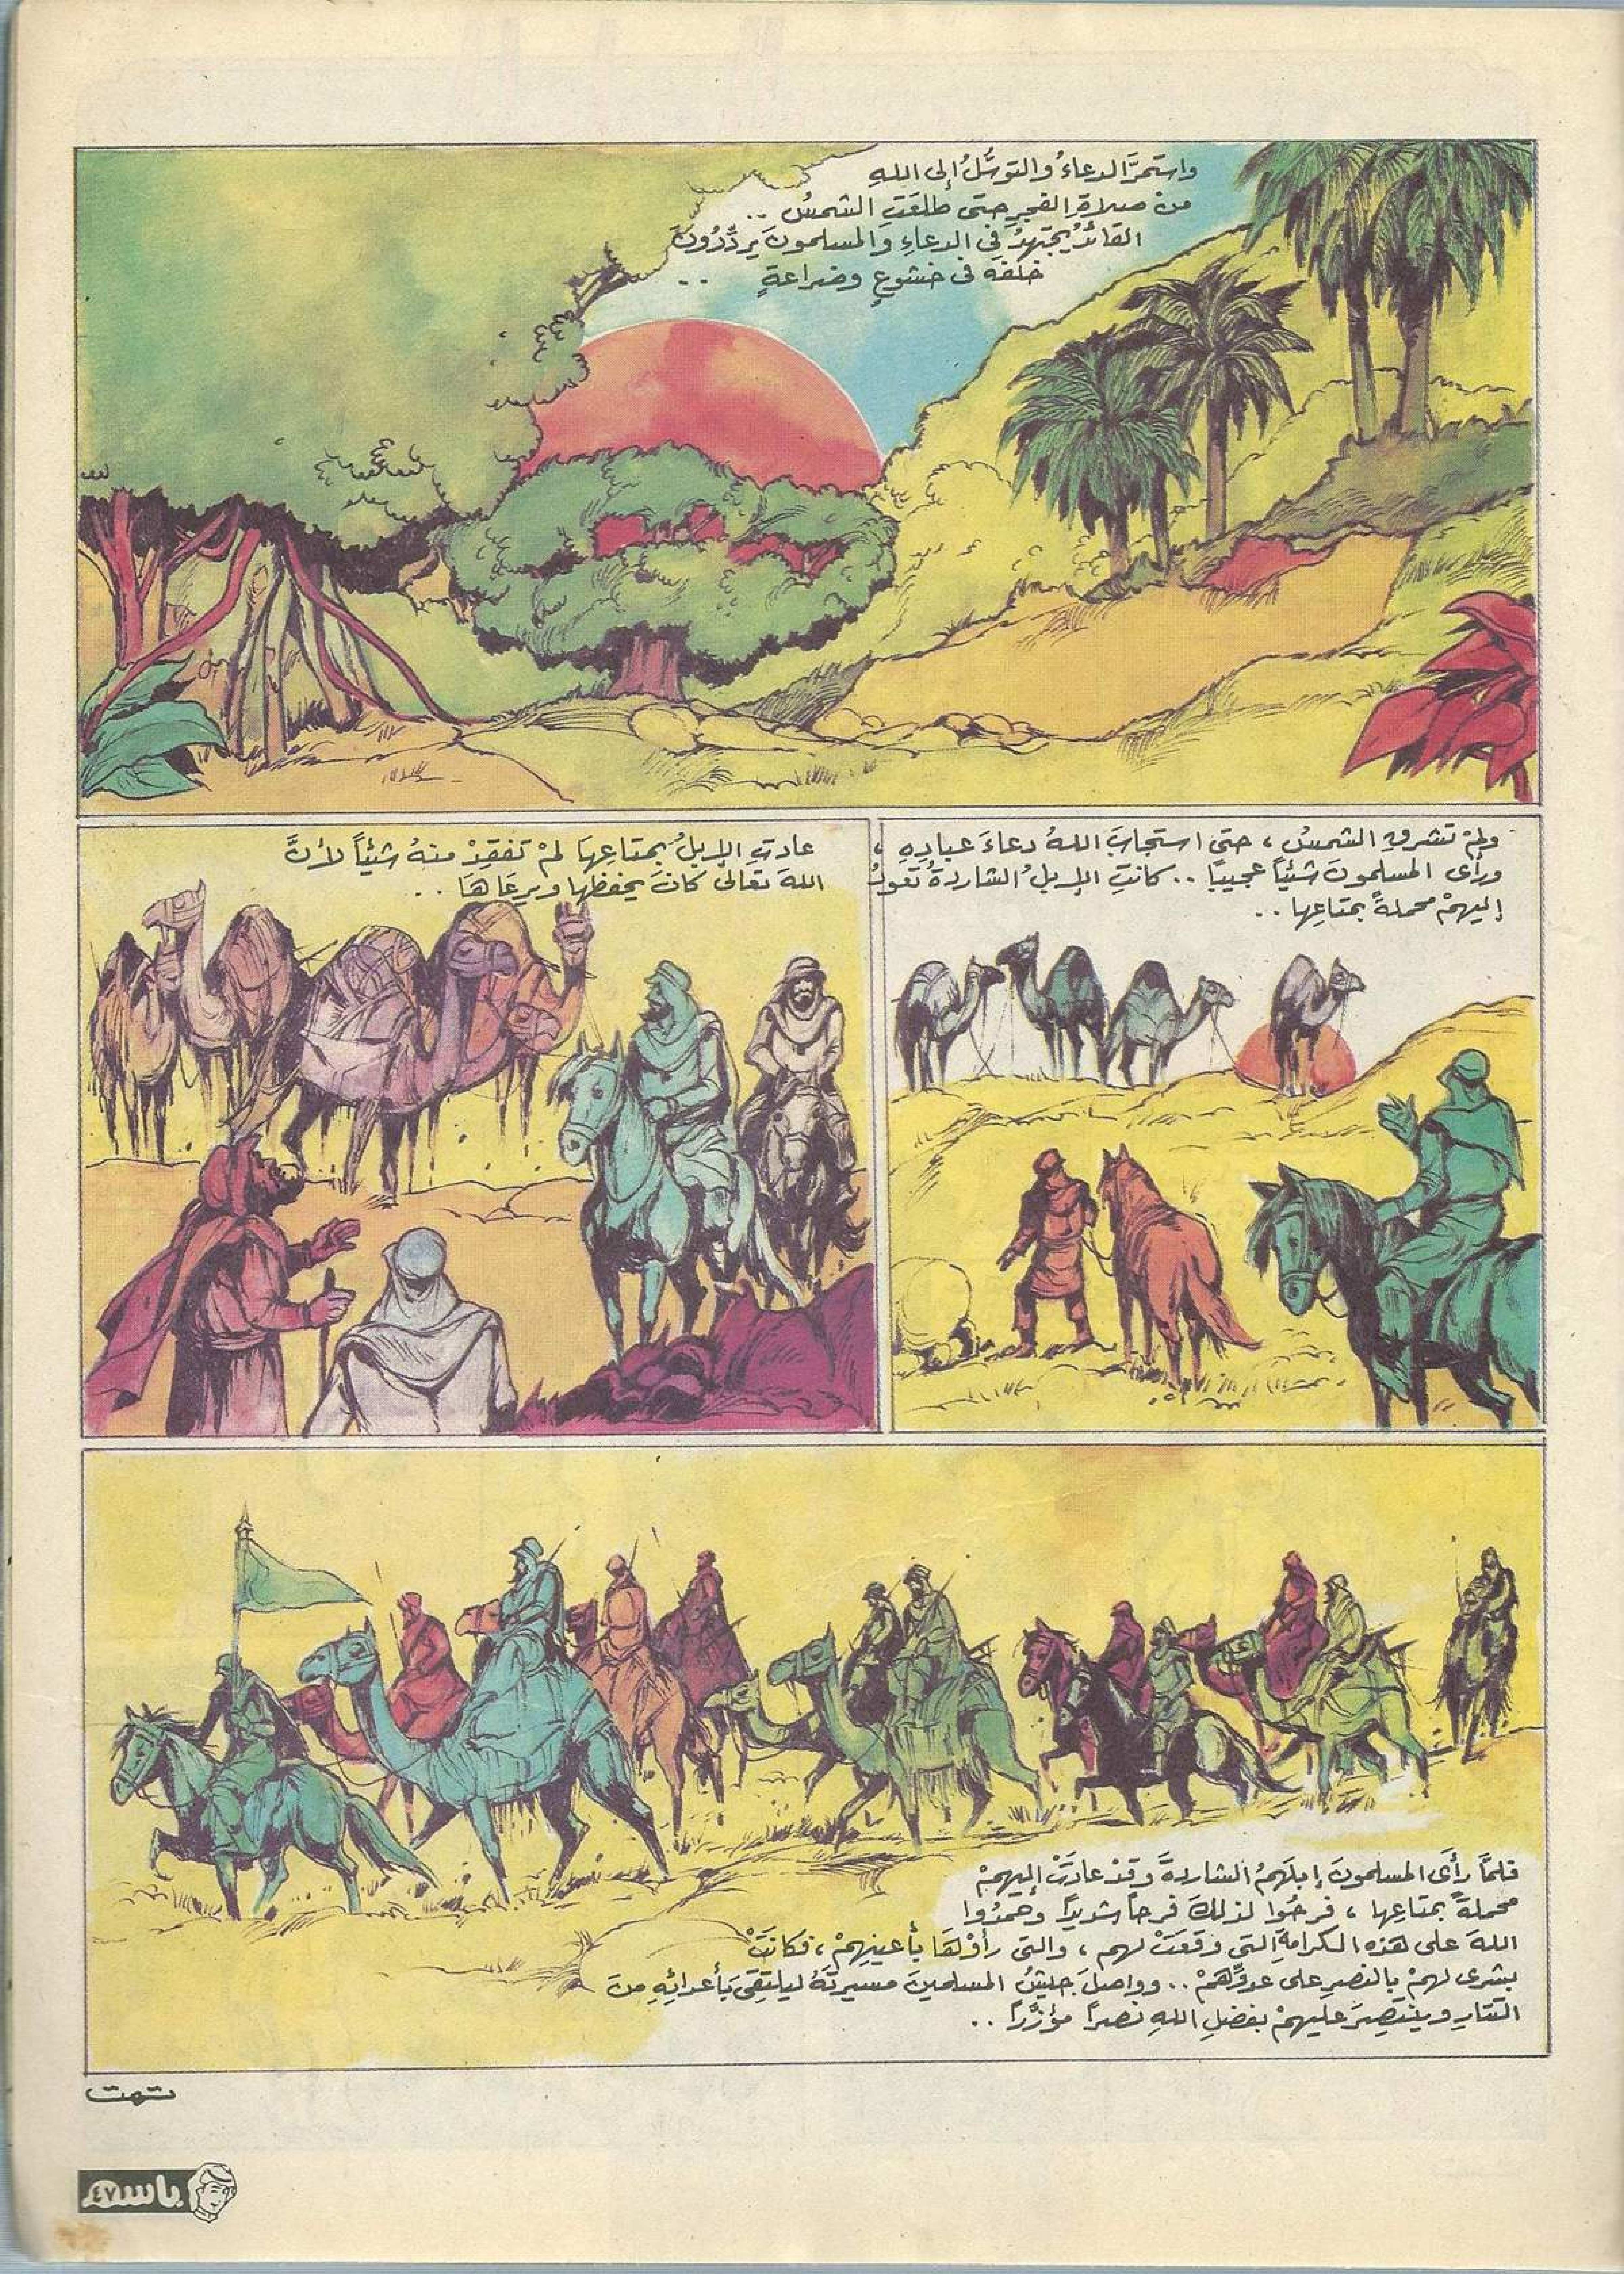 واستمرَّ الدعاءُ والتوسُّلُ إلى اللهِ
منْ صلاةِ الفجرِ حتى طلعَتِ الشمسُ ..
القائدُ يجتهدُ في الدعاءِ والمسلمونَ يردِّدُونَ
خلفَهُ في خشوعٍ وضراعةٍ ..
ولمْ تشرقِ الشمسُ ، حتى استجابَ اللهُ دعاءَ عبادِهِ ،
ورأى المسلمونَ شيئاً عجيبًا .. كانتِ الإبلُ الشاردةُ تعودُ
إليهمْ محملةً بمتاعِها ..
عادتِ الإبلُ بمتاعِها لمْ تفقِدْ منهُ شيئاً لأنَّ
اللهَ تعالى كانَ يحفظها ويرعَاهَا ..
فلمَّا رأَى المسلمونَ إبلَهمُ الشاردةَ وقدْ عادَتْ إليهمْ
محملةً بمتاعِها ، فرحُوا لذلكَ فرحاً شديداً وحمدُوا
اللهَ على هذهِ الكرامةِ التي وقعَتْ لهم ، والتي رأوْهَا بأعينِهمْ ، فكانَتْ
بشرى لهمْ بالنصرِ على عدوِّهمْ .. وواصلَ جيشُ المسلمينَ مسيرتَهُ ليلتقِىَ بأعدائِهِ منَ
التتارِ وينتصِرَ عليهمْ بفضلِ اللهِ نصراً مؤزَّراً ..
تمت
باسم ٤٧